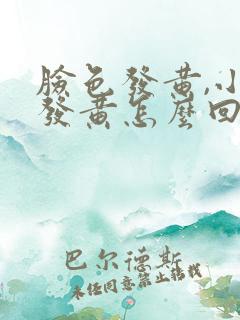 臉色發黃,小
發黃怎麼回
巴尔德斯
未经同意禁止转载